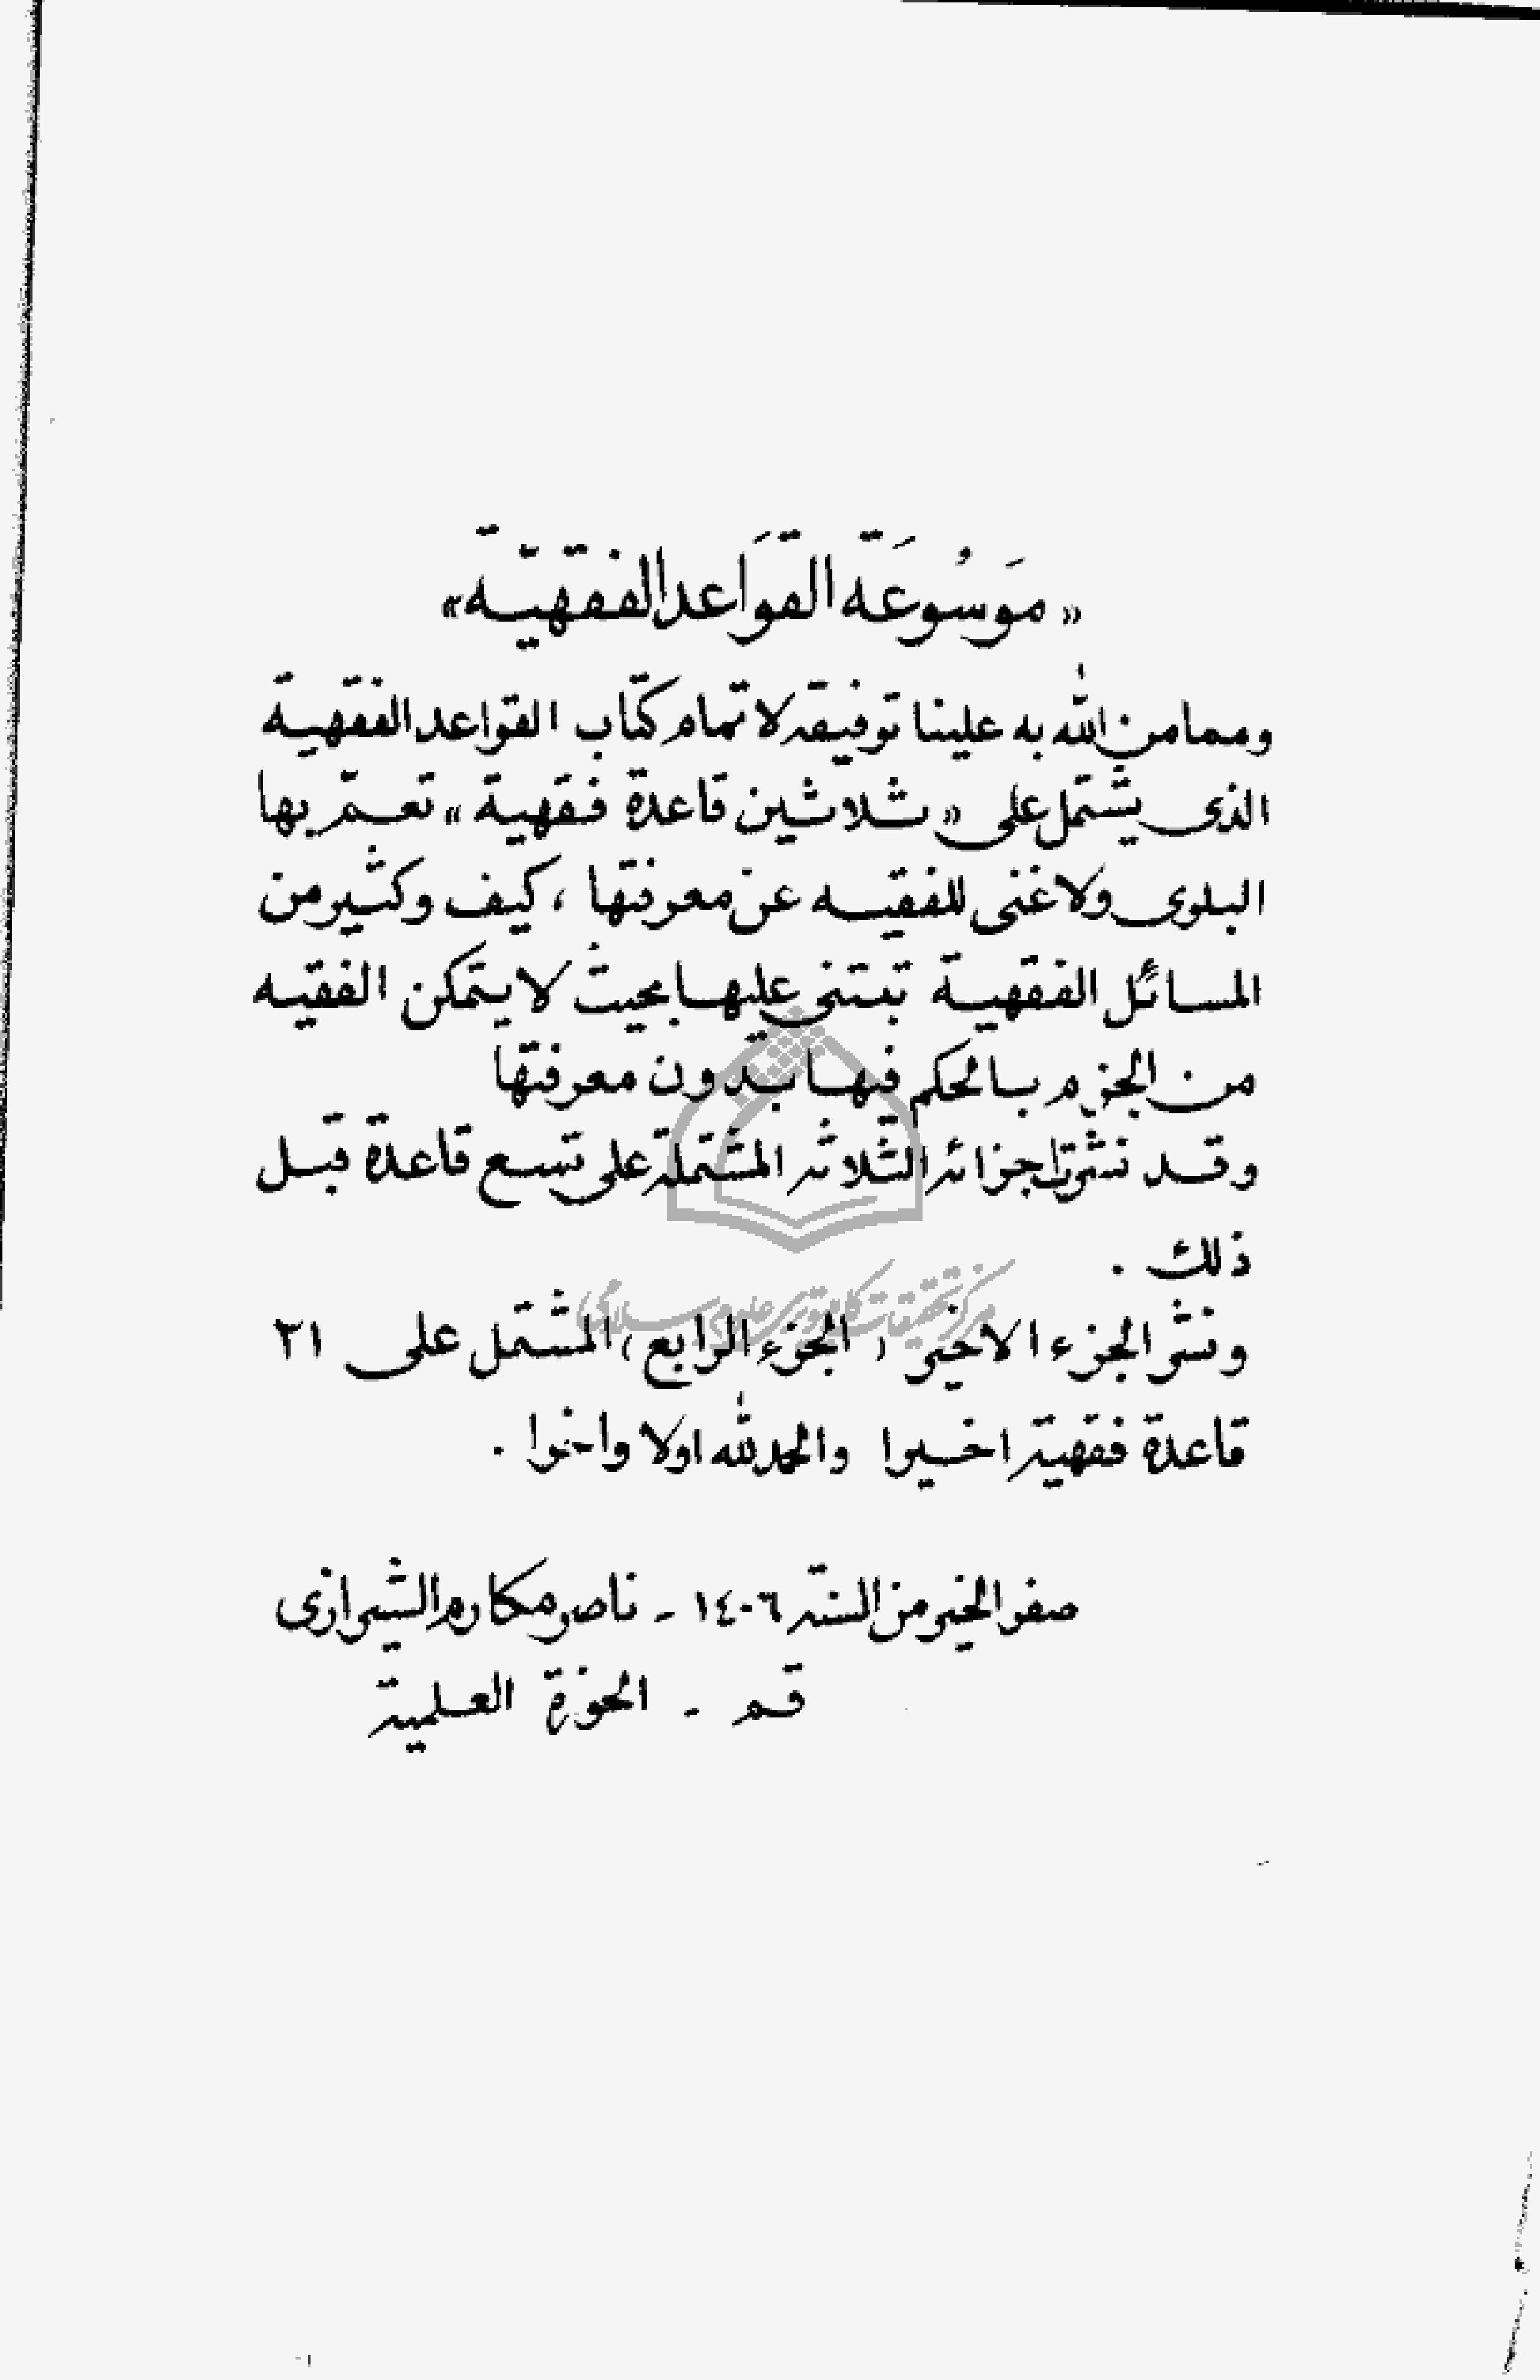 « مَوسُوعَة القَوَاعد الفقهيّة »
ومما من الله به علينا توفيقه لاتمام كتاب القواعد الفقهية
الذى يشتمل على « ثلاثين قاعدة فقهية » تعمّ بها
البلوى ولا غنى للفقيه عن معرفتها ، كيف وكثير من
المسائل الفقهية تبتنى عليها بحيث لا يتمكن الفقيه
من الجزم بالحكم فيها بدون معرفتها
وقد نشرت اجزائه الثلاثه المشتملة على تسع قاعدة قبل
ذلك .
مركز تحقيقات كامپيوتری علوم اسلامی
ونشر الجزء الاخير ( الجزء الرابع ) المشتمل على ٢١
قاعدة فقهية اخيرا والحمد لله اولا واخرا .
صفر الخير من السنة ١٤٠٦ - ناصر مكارم الشيرازى
قم - الحوزة العلمية